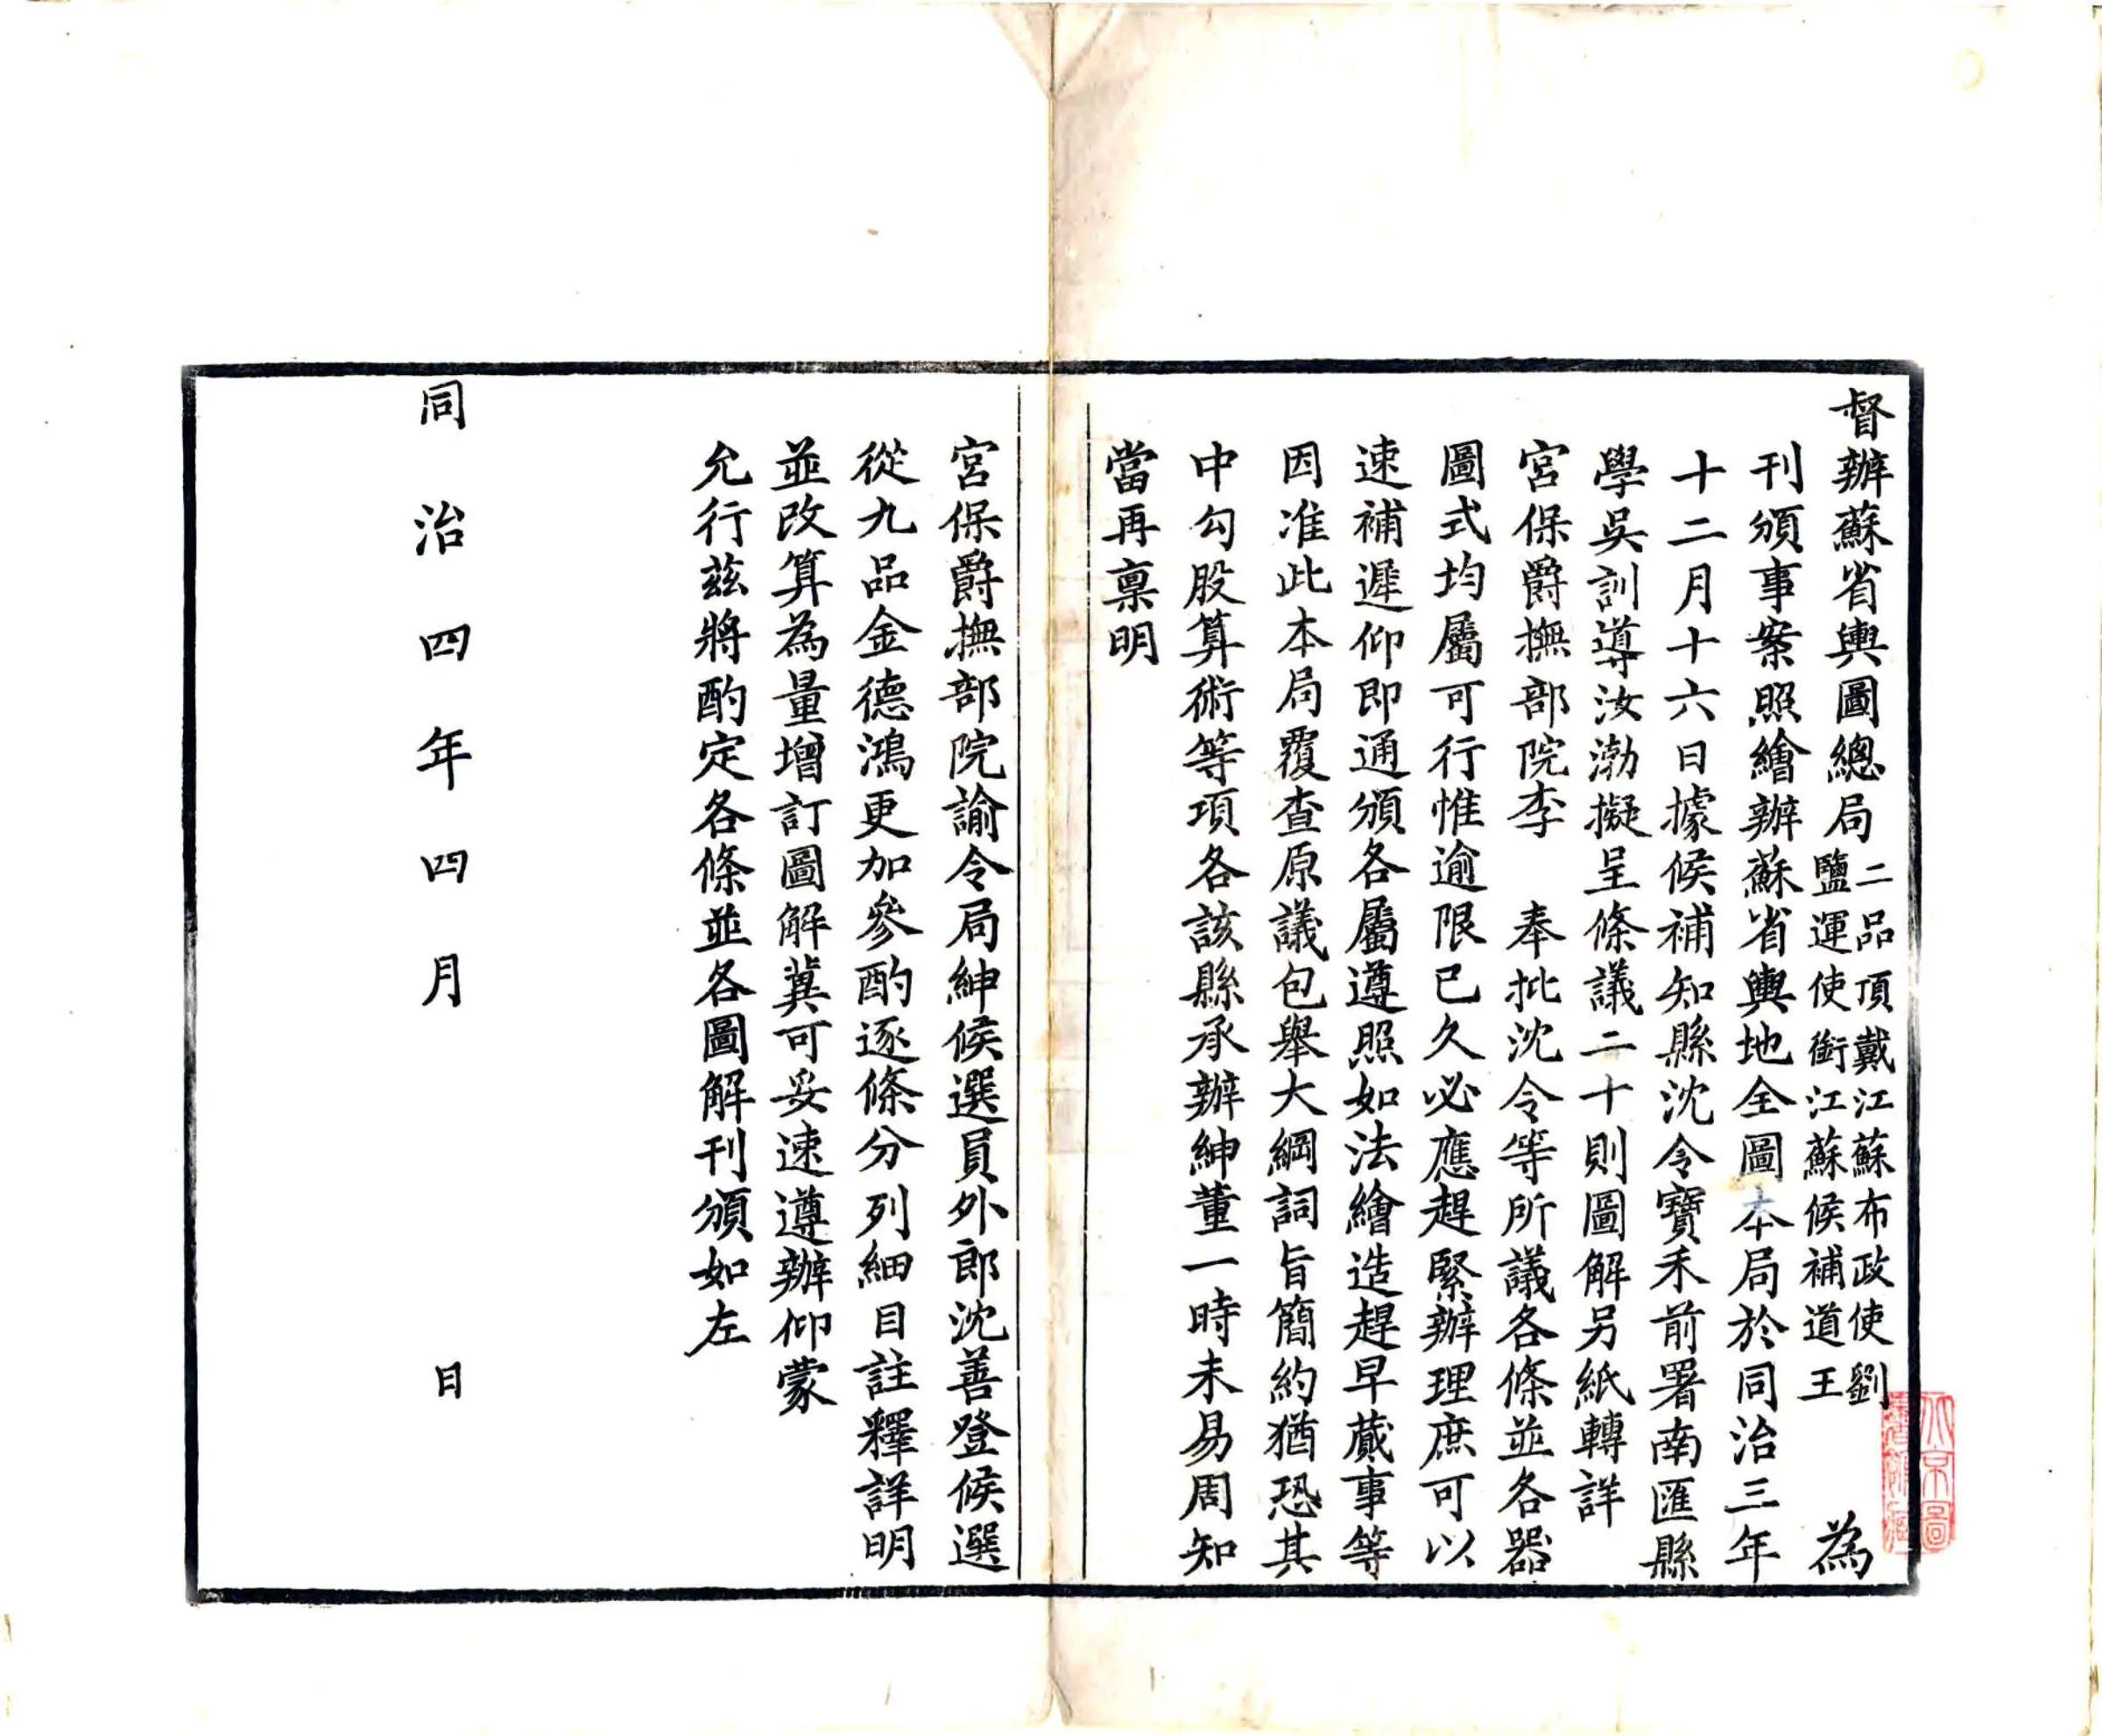 督辦蘇省輿圖總局二品頂戴江蘇布政使劉鹽運使銜江蘇候補道王 為
刊頒事案照繪辦蘇省輿地全圖本局於同治三年
十二月十六日據候補知縣沈令寶禾前署南匯縣
學吳訓導汝渤擬呈條議二十則圖解另紙轉詳
宮保爵撫部院李 奉批沈令等所議各條並各器
圖式均屬可行惟逾限已久必應趕緊辦理庶可以
速補遲仰即通頒各屬遵照如法繪造趕早蕆事等
因准此本局覆查原議包舉大綱詞旨簡約猶恐其
中勾股算術等項各該縣承辦紳董一時未易周知
當再稟明
宮保爵撫部院諭令局紳候選員外郎沈善登候選
從九品金德鴻更加參酌逐條分列細目註釋詳明
並改算為量增訂圖解冀可妥速遵辦仰蒙
允行茲將酌定各條並各圖解刊頒如左
同治四年四月 日